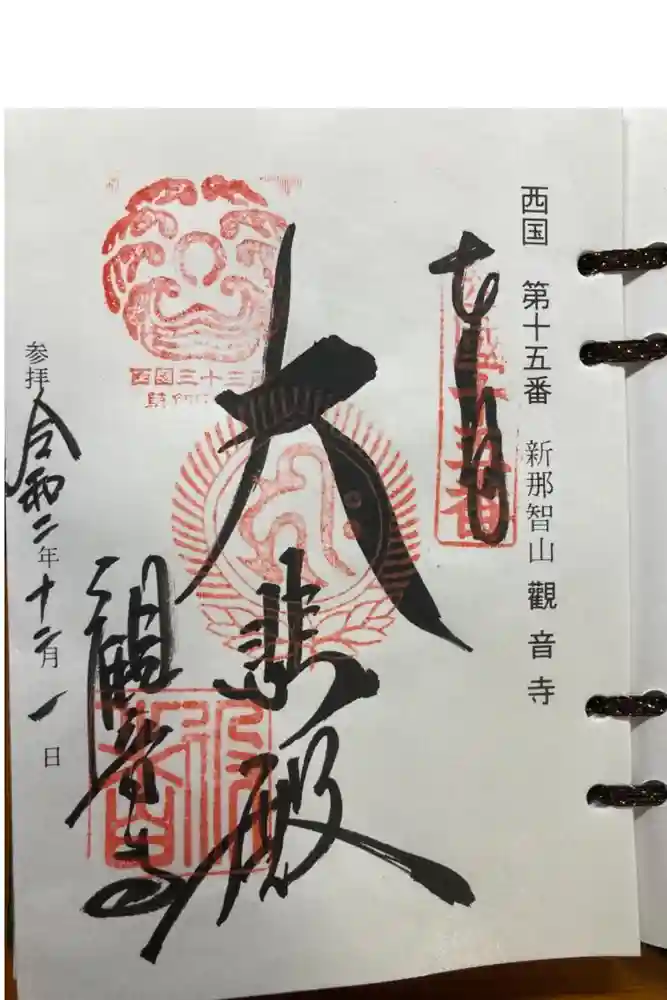 西国 第十五番 新那智山 觀音寺
奉拝
大悲殿
観音寺
参拝 令和二年十二月一日
西國三十三所